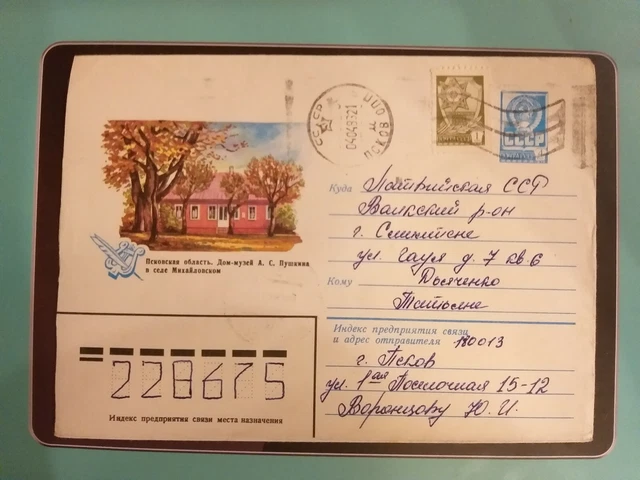 СССР
ПСКОВ ПОО
04048321
1
СССР
Куда Латвийская ССР
Валкский р-он
г. Смилтене
ул. Гауя д. 7 кв. 6
Кому Дьяченко
Татьяне
Псковская область. Дом-музей А. С. Пушкина
в селе Михайловском
Индекс предприятия связи
и адрес отправителя 180013
г. Псков
ул. 1ая Поселочная 15-12
Воронцову Ю. И.
228675
Индекс предприятия связи места назначения